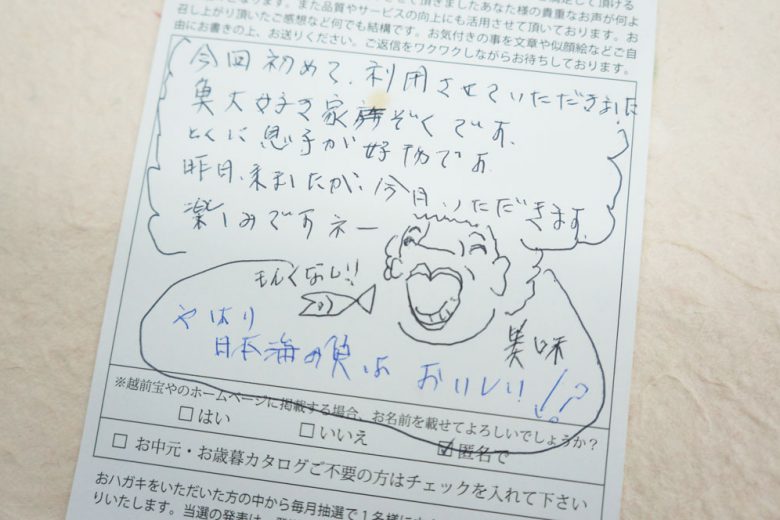 となります。また品質やサービスの向上にも活用させて頂いております。
召し上がり頂いたご感想など何でも結構です。お気付きの事を文章や似顔絵などご自
由にお書きの上、お送りください。ご返信をワクワクしながらお待ちしております。
今回初めて、利用させていただきました
魚大好き家族ぞくです。
とくに息子が好物です。
昨日、来ましたが、今日、いただきます。
楽しみですネー
もんくなし!!
美味
やはり
日本海の魚はおいしい!?
※越前宝やのホームページに掲載する場合、お名前を載せてよろしいでしょうか?
□はい □いいえ ☑匿名で
□ お中元・お歳暮カタログご不要の方はチェックを入れて下さい
おハガキをいただいた方の中から毎月抽選で1名様に
りいたします。当選の発表は、